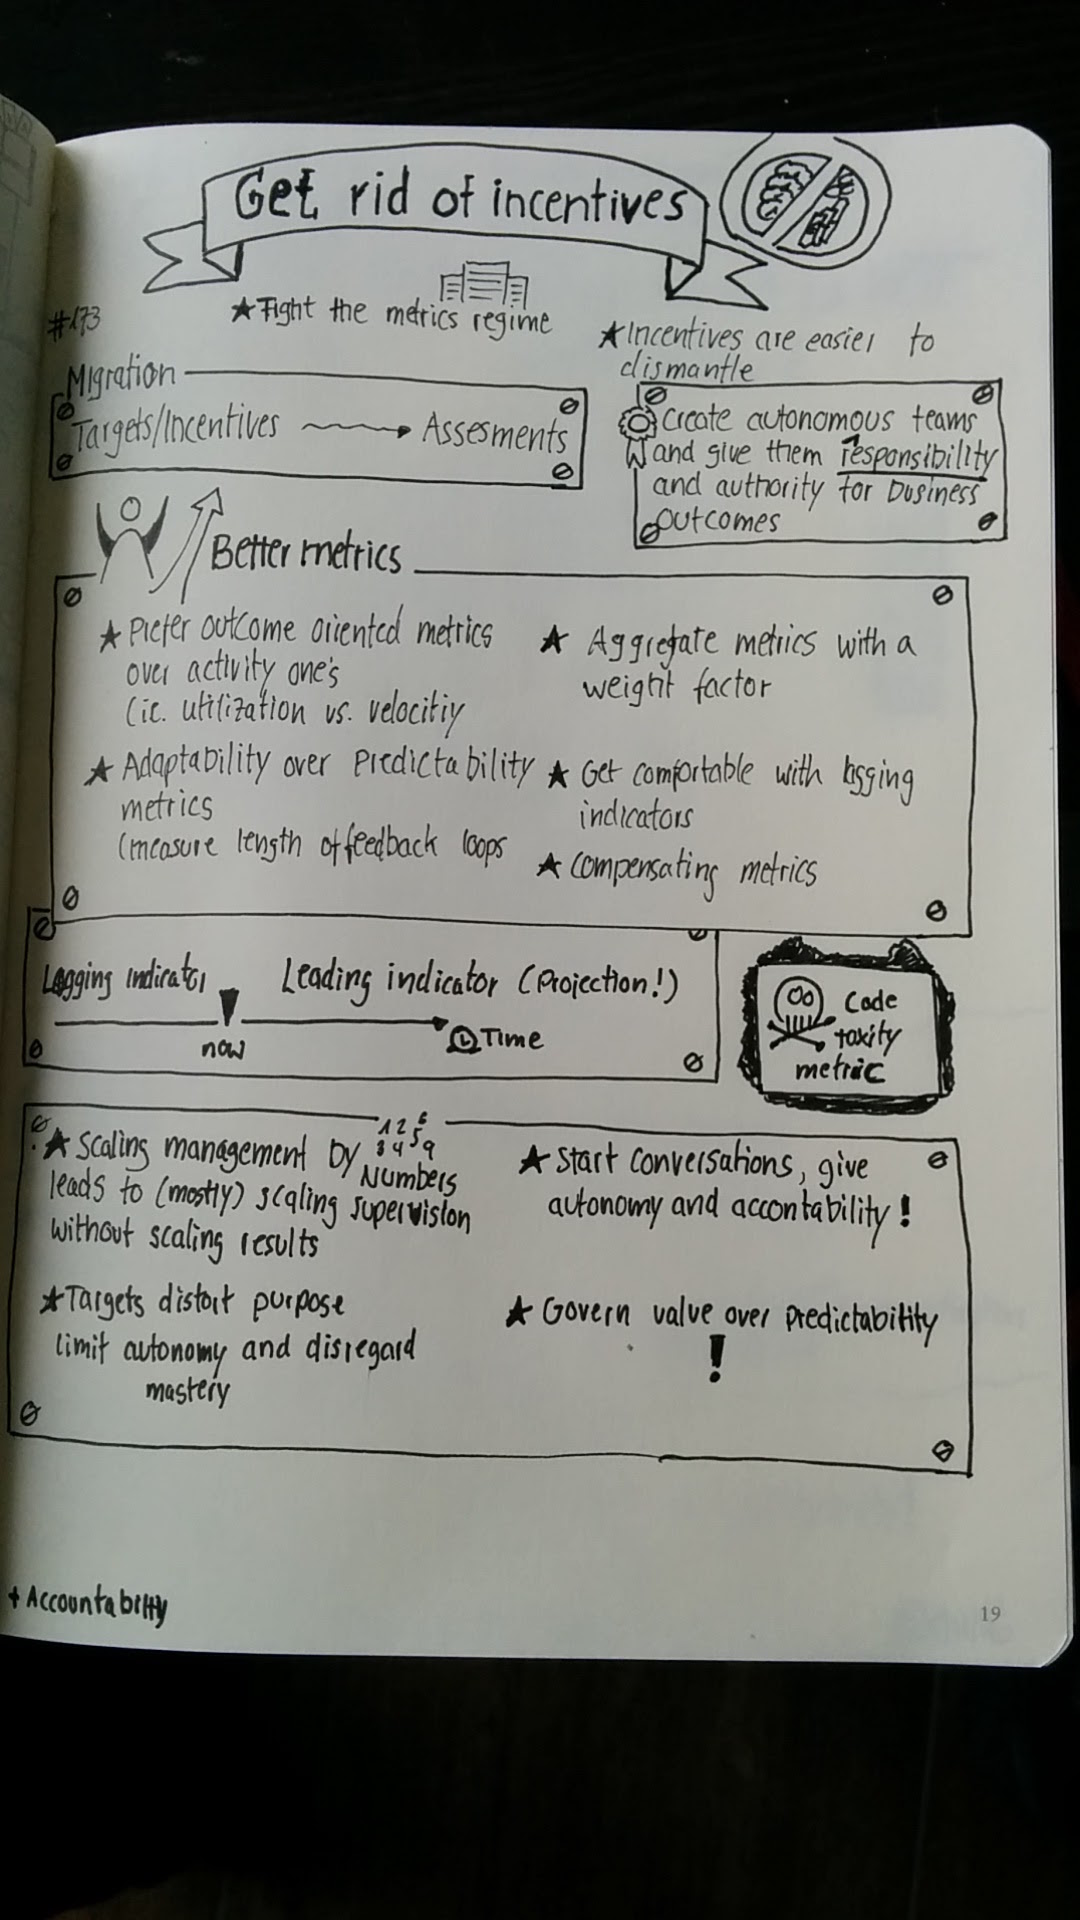 Get rid of incentives
#173
★ Fight the metrics regime
★ Incentives are easier to
dismantle
Migration
Targets/Incentives → Assesments
Create autonomous teams
and give them responsibility
and authority for business
outcomes
Better metrics
★ Prefer outcome oriented metrics
over activity one's
(ie. utilization vs. velocitiy
★ Adaptability over Predictability
metrics
(measure length of feedback loops
★ Aggregate metrics with a
weight factor
★ Get comfortable with lagging
indicators
★ Compensating metrics
Lagging indicator
Leading indicator (Projection!)
now
Time
Code
toxity
metric
★ Scaling management by
1 2 6
3 4 5 9
Numbers
leads to (mostly) scaling supervision
without scaling results
★ Targets distort purpose
limit autonomy and disregard
mastery
★ Start conversations, give
autonomy and accontability!
★ Govern value over predictability
!
+ Accountability
19